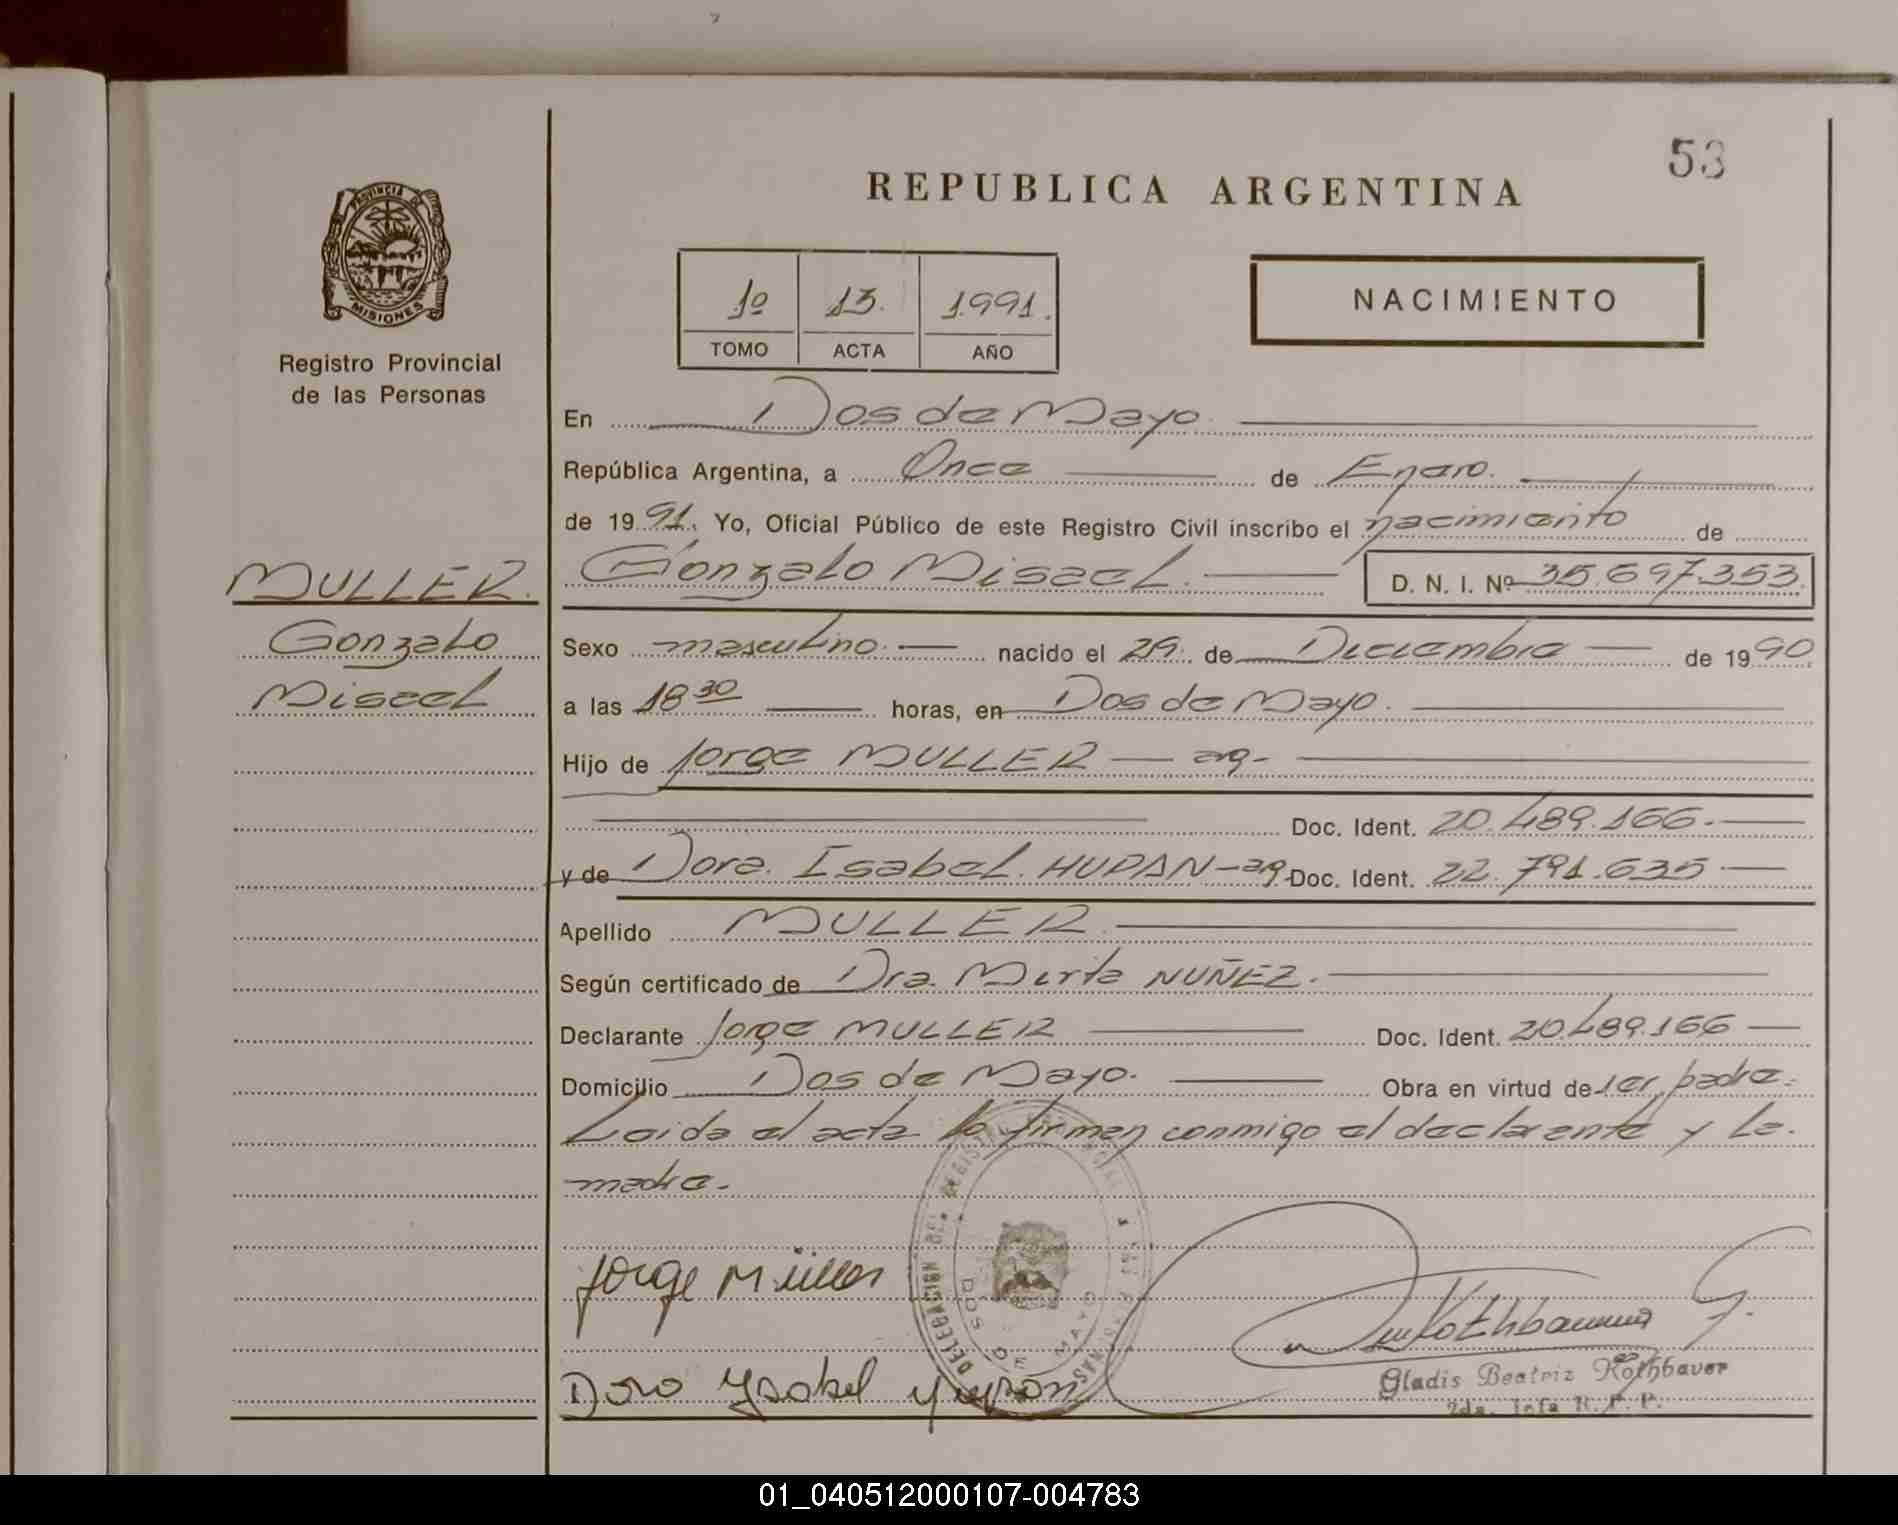 53
REPUBLICA ARGENTINA
PROVINCIA DE
MISIONES
Registro Provincial
de las Personas
1º 13. 1.991.
TOMO ACTA AÑO
NACIMIENTO
En Dos de Mayo.
República Argentina, a Once de Enero.
de 19 91. Yo, Oficial Público de este Registro Civil inscribo el nacimiento de
MULLER.
Gonzalo Misael. D. N. I. Nº 35.697.353.
Gonzalo
Sexo masculino. nacido el 29. de Diciembre de 19 90
Misael
a las 18 30 horas, en Dos de Mayo.
Hijo de Jorge MULLER — arg-
Doc. Ident. 20.489.166.
y de Dora. Isabel. HUPAN-arg. Doc. Ident. 22.791.635
Apellido MULLER.
Según certificado de Dra. Mirta NUÑEZ.
Declarante Jorge MULLER Doc. Ident. 20.489.166
Domicilio Dos de Mayo. Obra en virtud de ser padre.
Leida el acta la firman conmigo el declarante y la.
madre.-
Jorge Müller
DELEGACION DEL REGISTRO
DOS DE MAYO
Rothbauer G.
Gladis Beatriz Rothbauer
2da. Jefa R. P. P.
Doro Ysabel
01_040512000107-004783